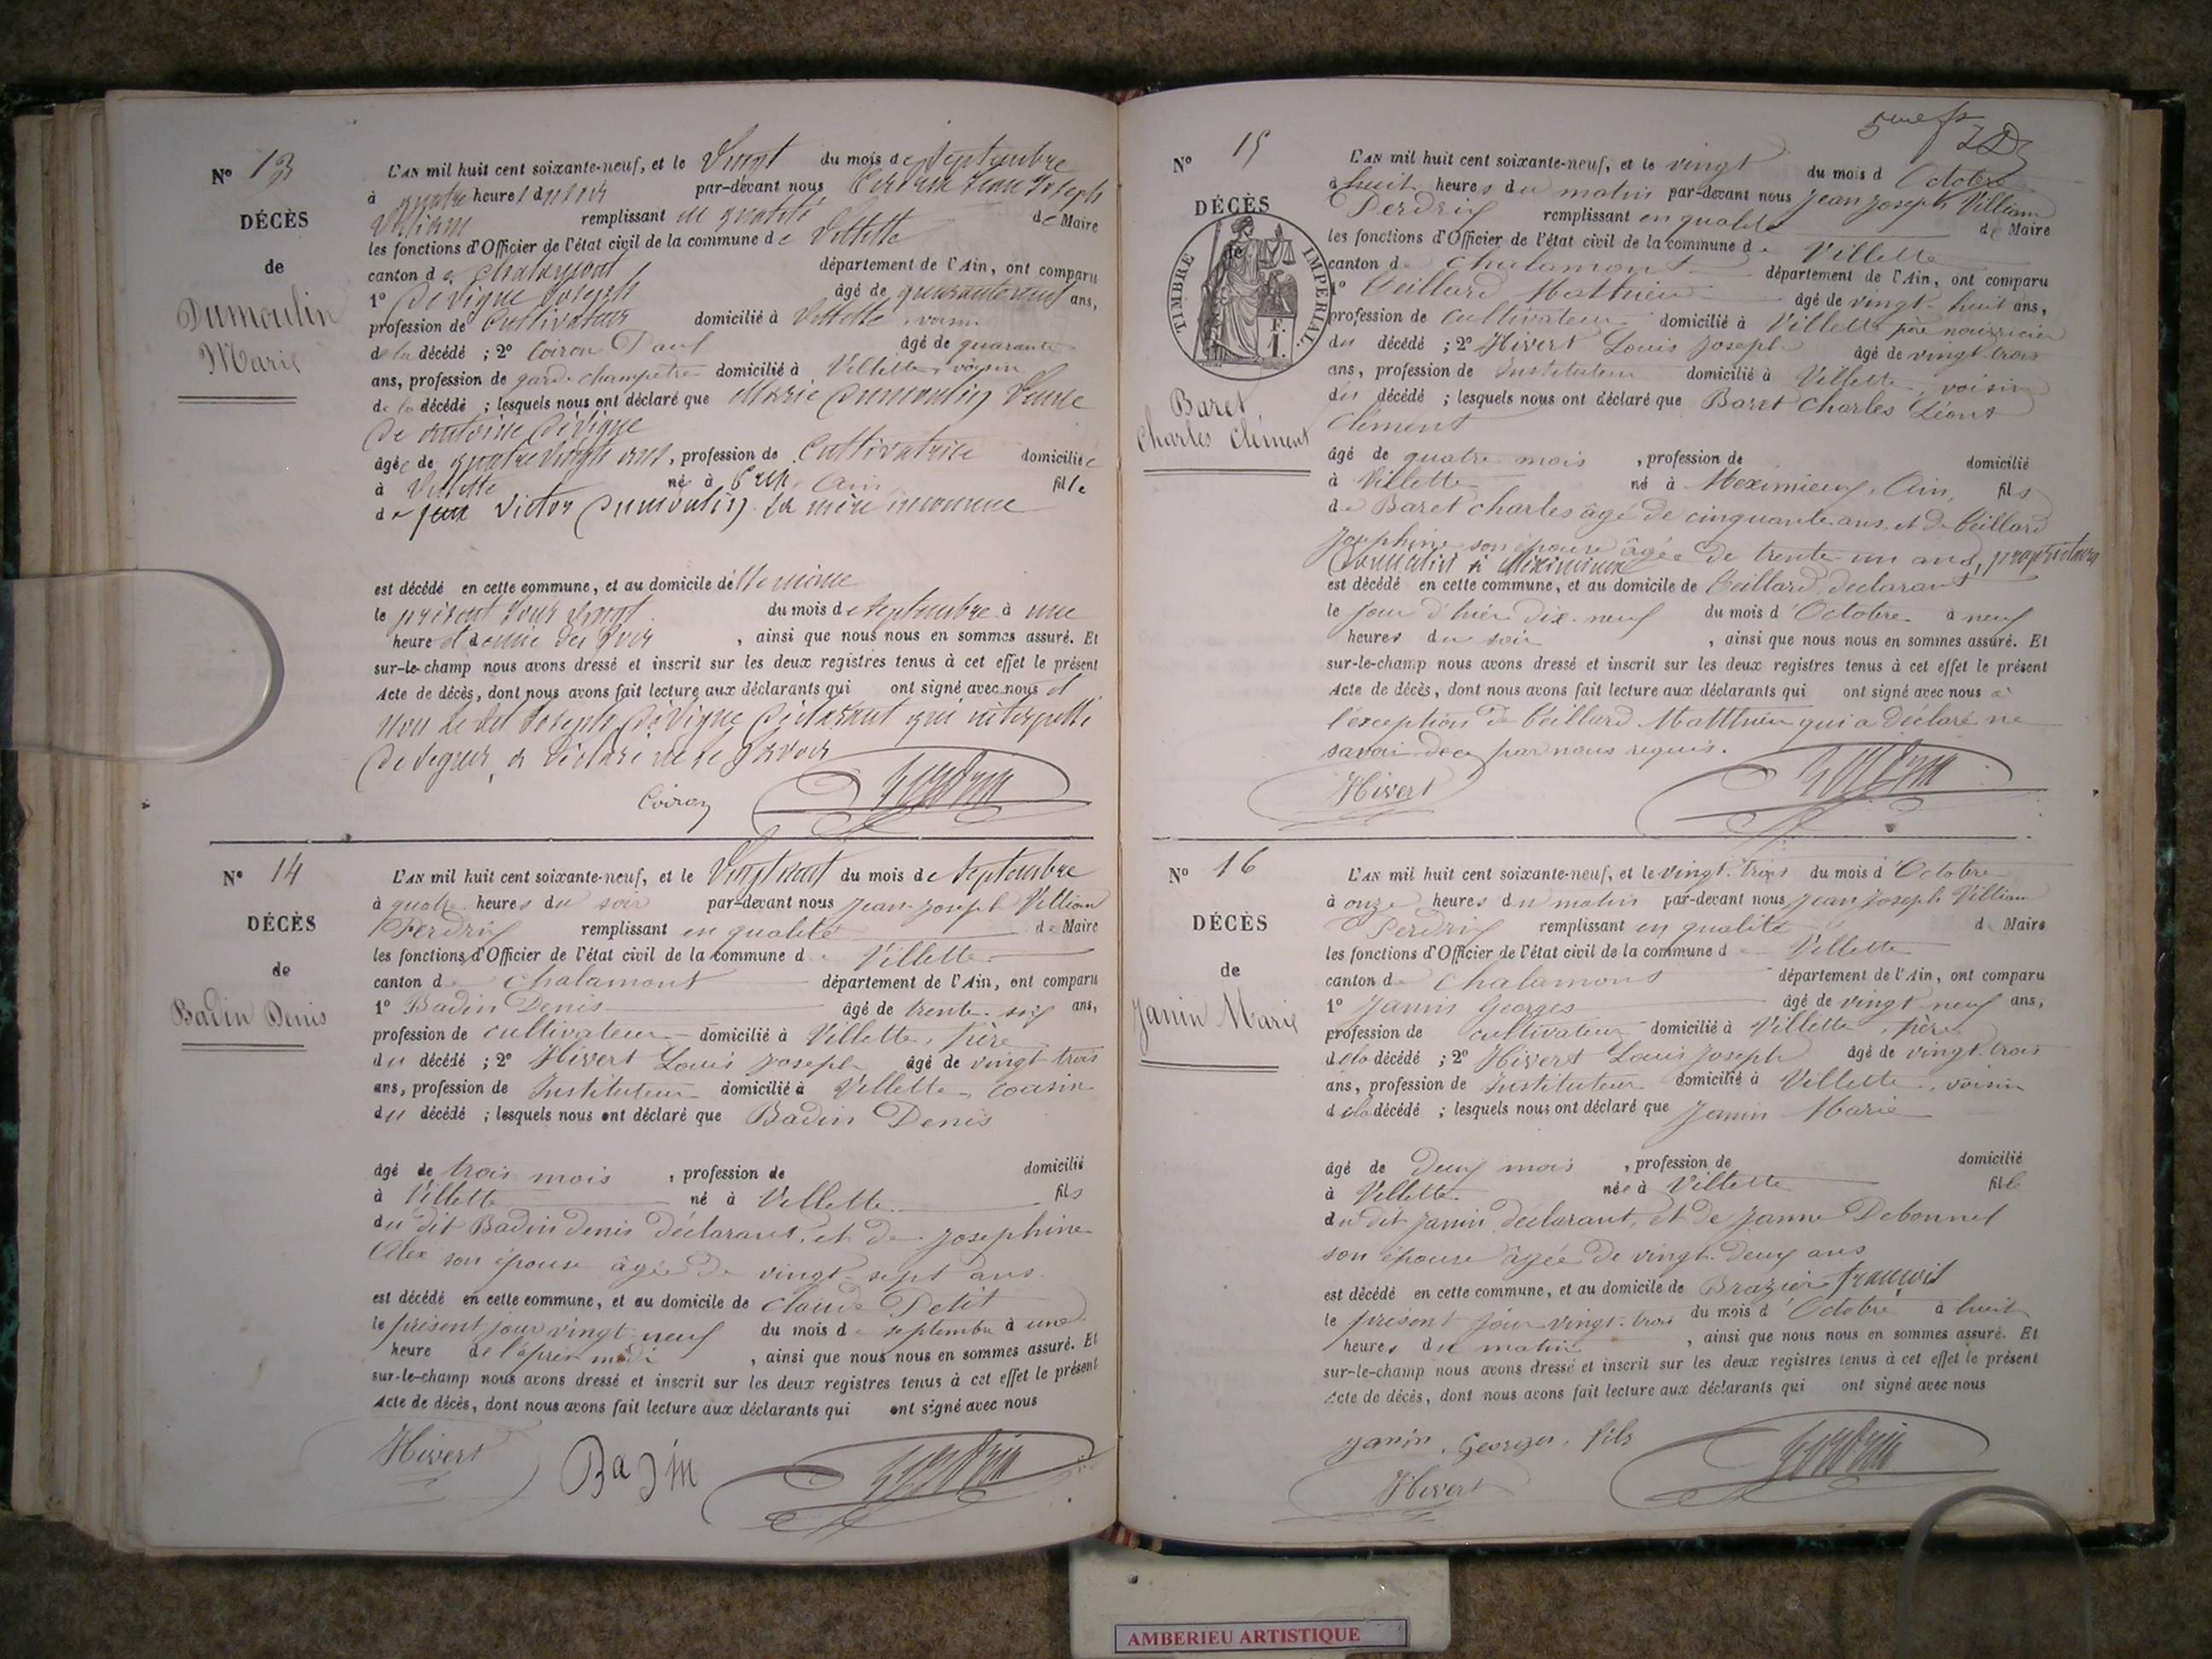 N° 13
DÉCÈS
de
Dumoulin
Marie
L'AN mil huit cent soixante-neuf, et le Vingt du mois de Septembre
à quatre heures du soir par-devant nous Perdrix Jean Joseph
Villiam remplissant en qualité de Maire
les fonctions d'Officier de l'état civil de la commune de Villette
canton de Chalamont département de l'Ain, ont comparu
1° Dévigne Joseph âgé de quarante ans,
profession de Cultivateur domicilié à Villette, voisin
de la décédé ; 2° Coiron Paul âgé de quarante
ans, profession de garde champêtre domicilié à Villette, voisin
de la décédé ; lesquels nous ont déclaré que Marie Dumoulin Veuve
de Antoine Dévigne
âgée de quatre vingts ans, profession de Cultivatrice domiciliée
à Villette né à Ain fille
de feu Victor Dumoulin, sa mère inconnue
est décédé en cette commune, et au domicile d'elle même
le présent jour vingt du mois de septembre à une
heure et demie du soir, ainsi que nous nous en sommes assuré. Et
sur-le-champ nous avons dressé et inscrit sur les deux registres tenus à cet effet le présent
Acte de décès, dont nous avons fait lecture aux déclarants qui ont signé avec nous et
non le dit Joseph Dévigne Déclarant qui interpellé
De signer, a Déclaré ne le Savoir
Coiron Perdrix
N° 14
DÉCÈS
de
Badin Denis
L'AN mil huit cent soixante-neuf, et le Vingt neuf du mois de Septembre
à quatre heures du soir par-devant nous Jean Joseph Villiam
Perdrix remplissant en qualité de Maire
les fonctions d'Officier de l'état civil de la commune de Villette
canton de Chalamont département de l'Ain, ont comparu
1° Badin Denis âgé de trente six ans,
profession de cultivateur domicilié à Villette, père
du décédé ; 2° Hivert Louis Joseph âgé de vingt trois
ans, profession de Instituteur domicilié à Villette, voisin
du décédé ; lesquels nous ont déclaré que Badin Denis
âgé de trois mois, profession de domicilié
à Villette né à Villette fils
du dit Badin Denis Déclarant, et de Josephine
Alex son épouse âgée de vingt sept ans
est décédé en cette commune, et au domicile de Claude Petit
le présent jour vingt neuf du mois de septembre à une
heure de l'après midi, ainsi que nous nous en sommes assuré. Et
sur-le-champ nous avons dressé et inscrit sur les deux registres tenus à cet effet le présent
Acte de décès, dont nous avons fait lecture aux déclarants qui ont signé avec nous
Hivert Badin Perdrix
N° 15
DÉCÈS
de
TIMBRE IMPÉRIAL.
1 F.
Baret
Charles Clément
L'AN mil huit cent soixante-neuf, et le vingt du mois d'Octobre
à huit heures du matin par-devant nous Jean Joseph Villiam
Perdrix remplissant en qualité de Maire
les fonctions d'Officier de l'état civil de la commune de Villette
canton de Chalamont département de l'Ain, ont comparu
1° Teillard Matthieu âgé de vingt huit ans,
profession de Cultivateur domicilié à Villette père nourricier
du décédé ; 2° Hivert Louis Joseph âgé de vingt trois
ans, profession de Instituteur domicilié à Villette, voisin
du décédé ; lesquels nous ont déclaré que Baret Charles Léon
Clément
âgé de quatre mois, profession de domicilié
à Villette né à Meximieux, Ain, fils
de Baret Charles âgé de cinquante ans, et de Teillard
Josephine son épouse âgée de trente un ans, propriétaires
Domiciliés à Meximieux
est décédé en cette commune, et au domicile de Teillard déclarant
le jour d'hier dix-neuf du mois d'Octobre à neuf
heures du soir, ainsi que nous nous en sommes assuré. Et
sur-le-champ nous avons dressé et inscrit sur les deux registres tenus à cet effet le présent
Acte de décès, dont nous avons fait lecture aux déclarants qui ont signé avec nous à
l'exception de Teillard Matthieu qui a Déclaré ne
savoir de ce par nous requis.
Hivert Perdrix
N° 16
DÉCÈS
de
Janin Marie
L'AN mil huit cent soixante-neuf, et le vingt-trois du mois d'Octobre
à onze heures du matin par-devant nous Jean Joseph Villiam
Perdrix remplissant en qualité d Maire
les fonctions d'Officier de l'état civil de la commune de Villette
canton de Chalamont département de l'Ain, ont comparu
1° Janin Georges âgé de vingt neuf ans,
profession de cultivateur domicilié à Villette, père
de la décédé ; 2° Hivert Louis Joseph âgé de vingt-trois
ans, profession de Instituteur domicilié à Villette, voisin
de la décédé ; lesquels nous ont déclaré que Janin Marie
âgé de Deux mois, profession de domicilié
à Villette née à Villette fille
du dit Janin déclarant, et de Janne Debonnel
son épouse âgée de vingt-deux ans
est décédé en cette commune, et au domicile de Brazier françois
le présent jour vingt-trois du mois d'Octobre à huit
heures du matin, ainsi que nous nous en sommes assuré. Et
sur-le-champ nous avons dressé et inscrit sur les deux registres tenus à cet effet le présent
Acte de décès, dont nous avons fait lecture aux déclarants qui ont signé avec nous
Janin Georges fils
Hivert Perdrix
AMBERIEU ARTISTIQUE